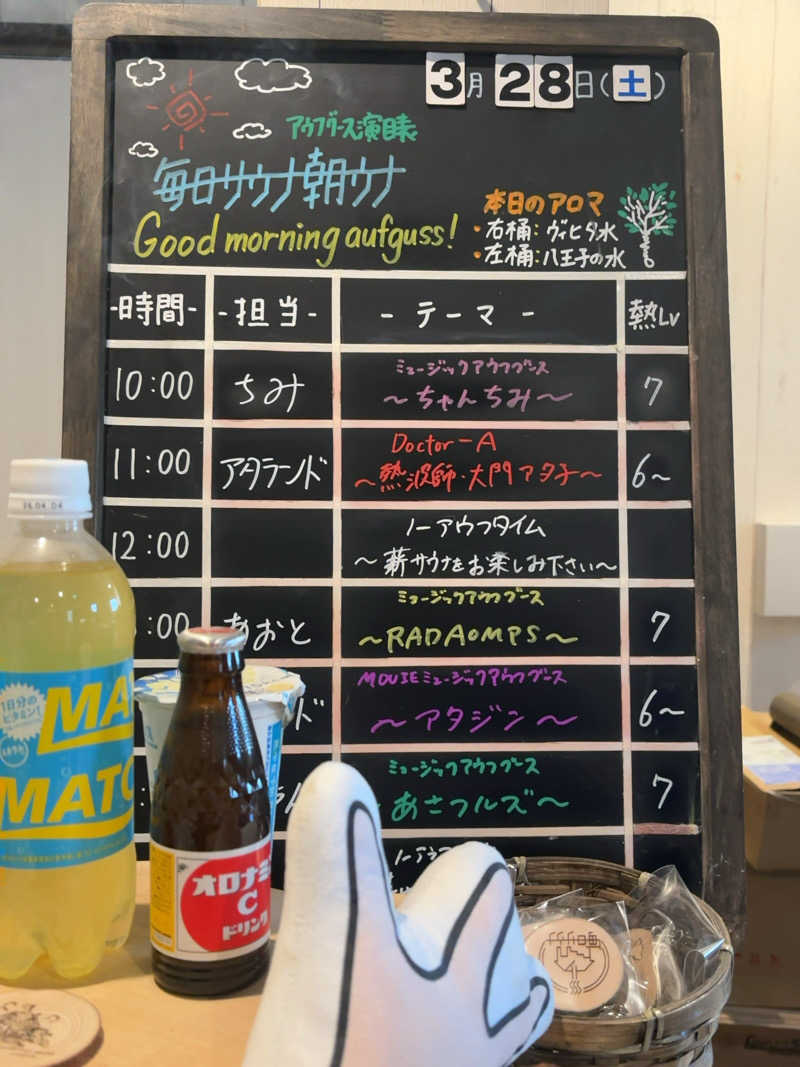 3月28日(土)
アウフグース演目表
毎日サウナ朝ウナ
Good morning aufguss!
本日のアロマ
・右桶：ヴィヒタ水
・左桶：八王子の水
-時間- -担当- -テーマ- 熱Lv
10:00 ちみ ミュージックアウフグース 7
～ちゃんちみ～
11:00 アタランド Doctor-A 6～
～熱波師・大門アタ子～
12:00 ノーアウフタイム
～薪サウナをお楽しみ下さい～
:00 あおと ミュージックアウフグース 7
～RADAOMPS～
ド MOVIEミュージックアウフグース 6～
～アタジン～
ミュージックアウフグース 7
あさフルズ～
ノーア
26.04.04
1日分の
ビタミン!
MA
MATC
オロナミ
C
ドリンク